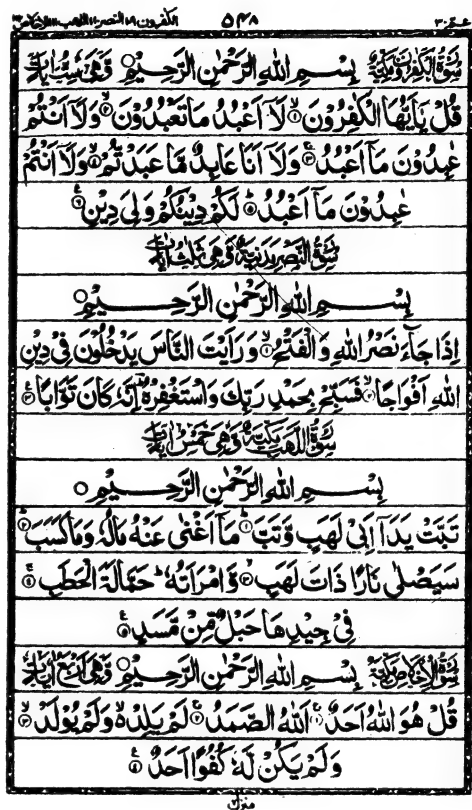 عمّ ٣٠ ۵۴۸ الكٰفرون النصر اللهب الاخلاص
سُوْرَةُ الْكٰفِرُوْنَ مَكِّيَّةٌ بِسْمِ اللهِ الرَّحْمٰنِ الرَّحِيْمِ ○ وَّهِيَ سِتُّ اٰيَاتٍ
قُلْ يٰۤاَيُّهَا الْكٰفِرُوْنَ ۙ﴿١﴾ لَاۤ اَعْبُدُ مَا تَعْبُدُوْنَ ۙ﴿٢﴾ وَلَاۤ اَنْتُمْ
عٰبِدُوْنَ مَاۤ اَعْبُدُ ۚ﴿٣﴾ وَلَاۤ اَنَا عَابِدٌ مَّا عَبَدْتُّمْ ۙ﴿٤﴾ وَلَاۤ اَنْتُمْ
عٰبِدُوْنَ مَاۤ اَعْبُدُ ؕ﴿٥﴾ لَكُمْ دِيْنُكُمْ وَلِيَ دِيْنِ ﴿٦﴾ ع
سُوْرَةُ النَّصْرِ مَدَنِيَّةٌ وَّهِيَ ثَلٰثُ اٰيَاتٍ
بِسْمِ اللهِ الرَّحْمٰنِ الرَّحِيْمِ ○
اِذَا جَآءَ نَصْرُ اللهِ وَالْفَتْحُ ۙ﴿١﴾ وَرَاَيْتَ النَّاسَ يَدْخُلُوْنَ فِيْ دِيْنِ
اللهِ اَفْوَاجًا ۙ﴿٢﴾ فَسَبِّحْ بِحَمْدِ رَبِّكَ وَاسْتَغْفِرْهُ ؕ اِنَّهٗ كَانَ تَوَّابًا ﴿٣﴾ ع
سُوْرَةُ اللَّهَبِ مَكِّيَّةٌ وَّهِيَ خَمْسُ اٰيَاتٍ
بِسْمِ اللهِ الرَّحْمٰنِ الرَّحِيْمِ ○
تَبَّتْ يَدَاۤ اَبِيْ لَهَبٍ وَّتَبَّ ؕ﴿١﴾ مَاۤ اَغْنٰى عَنْهُ مَالُهٗ وَمَا كَسَبَ ؕ﴿٢﴾
سَيَصْلٰى نَارًا ذَاتَ لَهَبٍ ۙ﴿٣﴾ وَّامْرَاَتُهٗ ؕ حَمَّالَةَ الْحَطَبِ ۚ﴿٤﴾
فِيْ جِيْدِهَا حَبْلٌ مِّنْ مَّسَدٍ ﴿٥﴾ ع
سُوْرَةُ الْاِخْلَاصِ مَكِّيَّةٌ بِسْمِ اللهِ الرَّحْمٰنِ الرَّحِيْمِ ○ وَّهِيَ اَرْبَعُ اٰيَاتٍ
قُلْ هُوَ اللهُ اَحَدٌ ۚ﴿١﴾ اَللهُ الصَّمَدُ ۚ﴿٢﴾ لَمْ يَلِدْ ۙ۬ وَلَمْ يُوْلَدْ ۙ﴿٣﴾
وَلَمْ يَكُنْ لَّهٗ كُفُوًا اَحَدٌ ﴿٤﴾ ع
منزل ٧